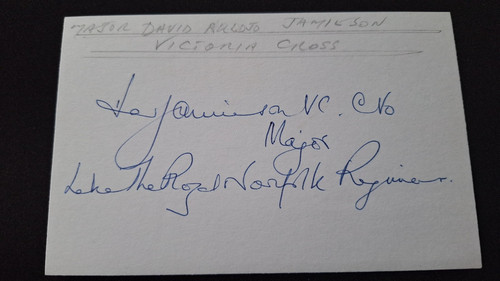 MAJOR DAVID AULDJO JAMIESON
VICTORIA CROSS
Jamieson VC. CVO
Major
Late The Royal Norfolk Regiment.